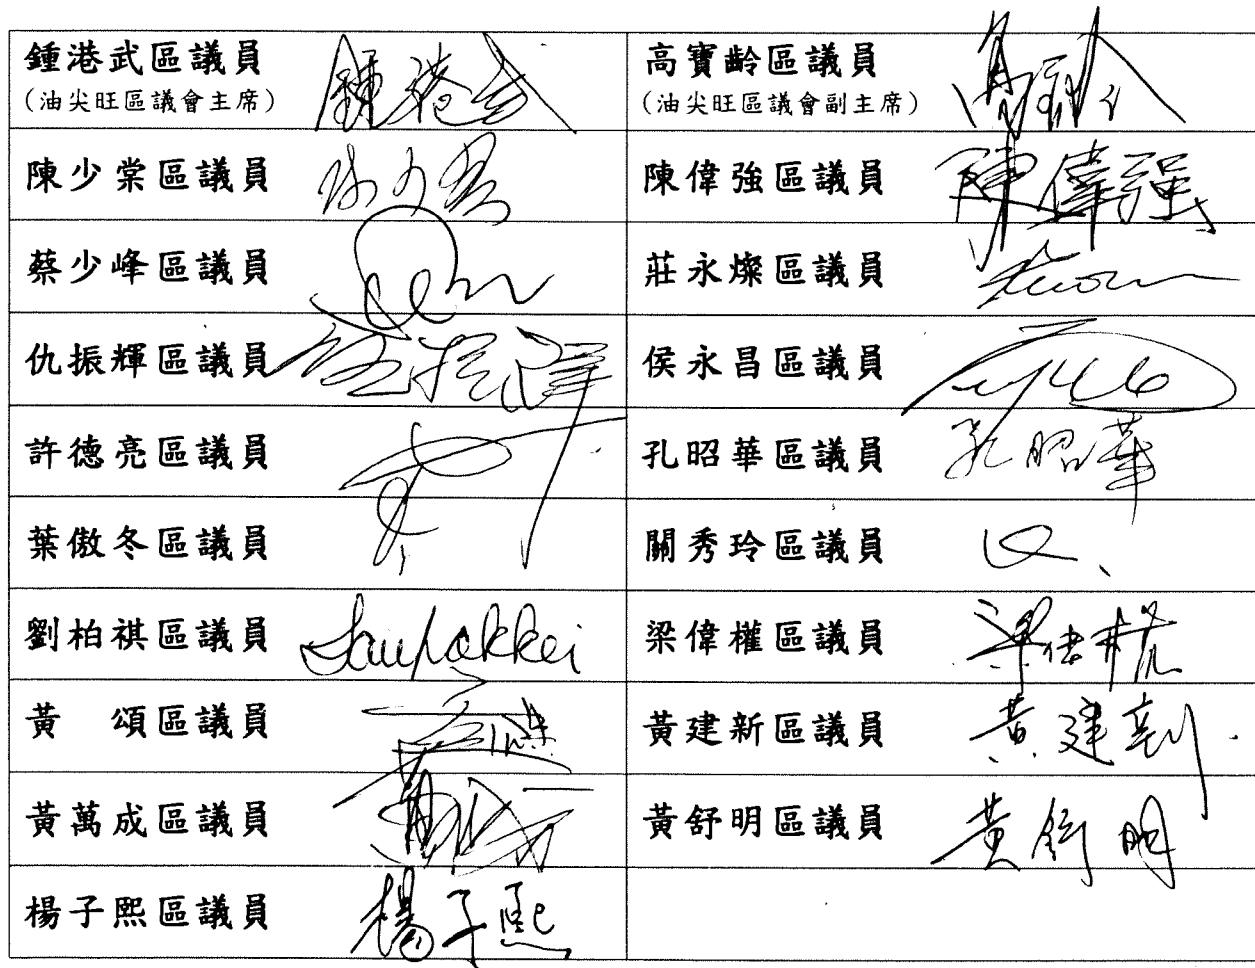 鍾港武區議員 鍾港武 高寶齡區議員
(油尖旺區議會主席) (油尖旺區議會副主席)
陳少棠區議員 陳偉強區議員 陳偉強
蔡少峰區議員 莊永燦區議員
仇振輝區議員 侯永昌區議員
許德亮區議員 孔昭華區議員 孔昭華
葉傲冬區議員 關秀玲區議員
劉柏祺區議員 Laupakkei 梁偉權區議員 梁伟权
黃 頌區議員 黃建新區議員 黃建新
黃萬成區議員 黃舒明區議員 黃舒明
楊子熙區議員 楊子熙